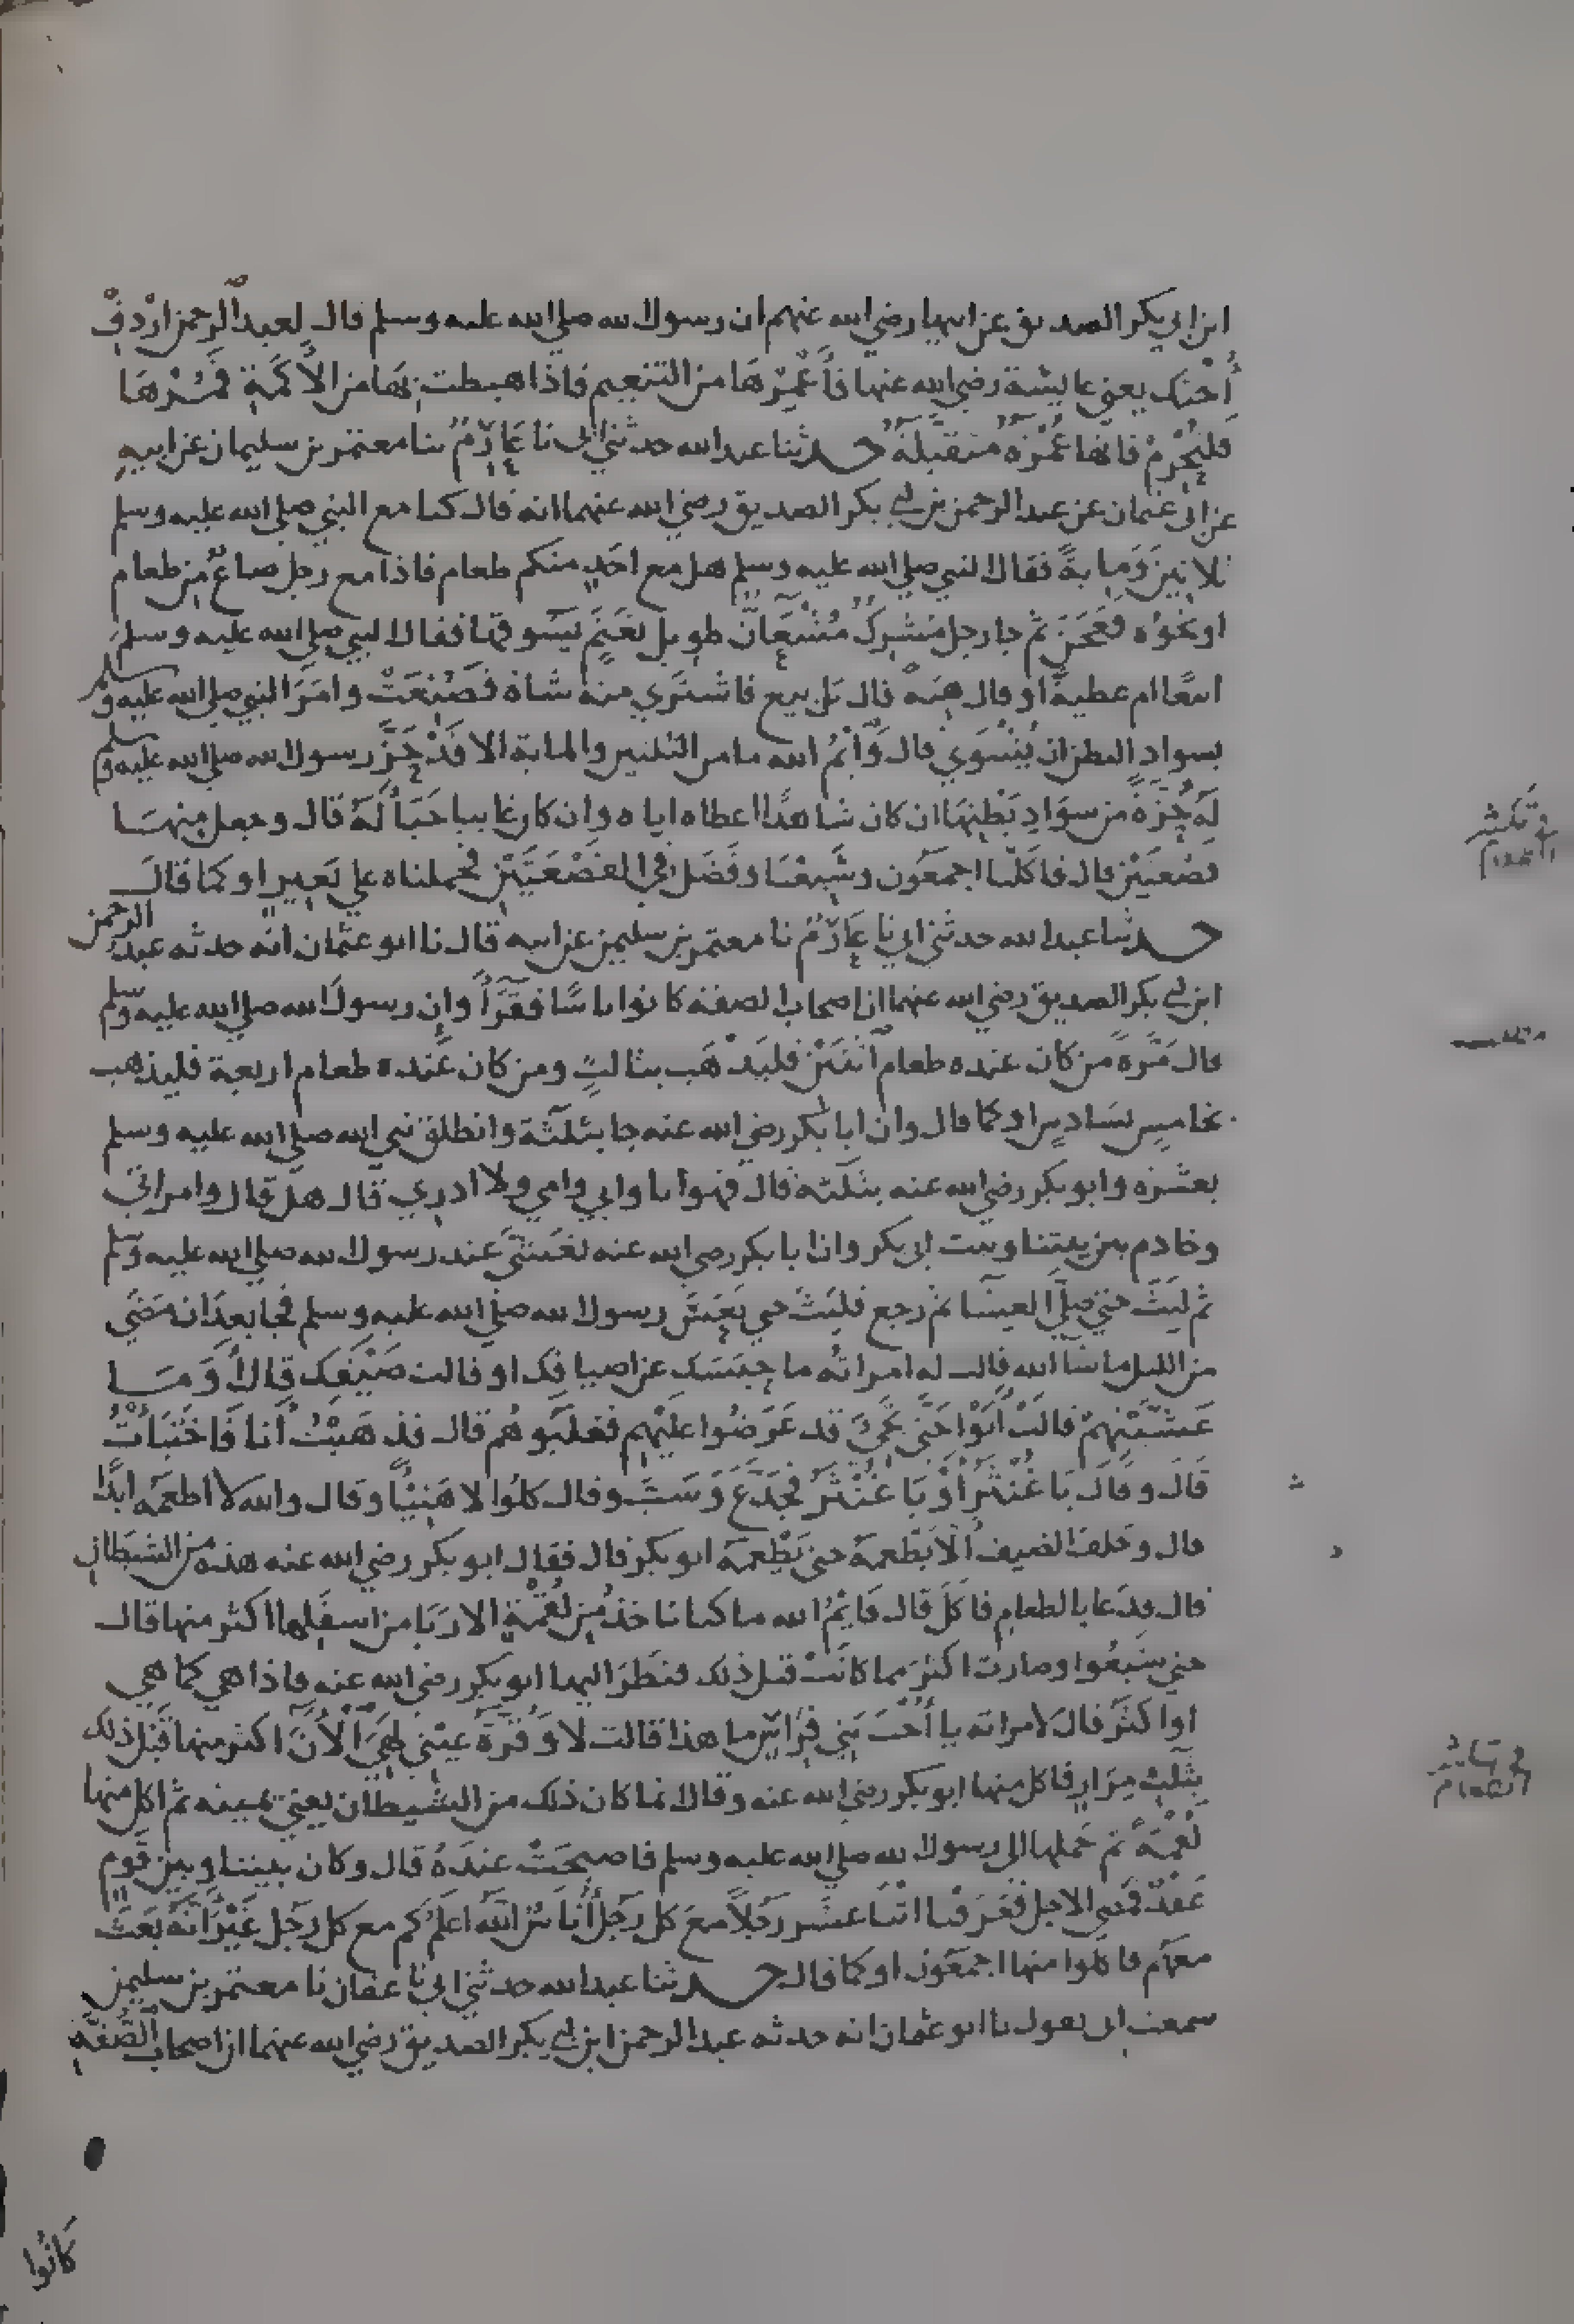 ابن ابي بكر الصديق عن ابيها رضي الله عنهم ان رسول الله صلى الله عليه وسلم قال لعبد الرحمن اردف
أختك يعني عايشة رضي الله عنها فأعمرها من التنعيم فاذا هبطت بها من الأكمة فمرها
فلتحرم فانها عمرة متقبلة حدثنا عبد الله حدثني ابي نا عارم ثنا معتمر بن سليمان عن ابيه
عن ابي عثمان عن عبد الرحمن بن ابي بكر الصديق رضي الله عنهما انه قال كنا مع النبي صلى الله عليه وسلم
ثلاثين وماية فقال النبي صلى الله عليه وسلم هل مع احد منكم طعام فاذا مع رجل صاع من طعام
او نحوه فعجن ثم جا رجل مشرك مشعان طويل بغنم يسوقها فقال النبي صلى الله عليه وسلم
ابيعا ام عطية او قال هبة قال بل بيع فاشترى منه شاة فصنعت وامر النبي صلى الله عليه وسلم
بسواد البطن ان يشوى قال وأيم الله ما من الثلثين والماية الا قد حز رسول الله صلى الله عليه وسلم
له حزة من سواد بطنها ان كان شاهدا اعطاه اياه وان كان غايبا خبأ له قال وجعل منها
قصعتين قال فاكلنا اجمعون وشبعنا وفضل في القصعتين فحملناه على بعير او كما قال
حدثنا عبد الله حدثني ابي نا عارم نا معتمر بن سليمن عن ابيه قال نا ابو عثمان انه حدثه عبد الرحمن
ابن ابي بكر الصديق رضي الله عنهما ان اصحاب الصفة كانوا اناسا فقرآ وان رسول الله صلى الله عليه وسلم
قال مرة من كان عنده طعام اثنين فليذهب بثالث ومن كان عنده طعام اربعة فليذهب
بخامس بسادس او كما قال وان ابا بكر رضي الله عنه جا بثلثة وانطلق نبي الله صلى الله عليه وسلم
بعشرة وابو بكر رضي الله عنه بثلثة قال فهو انا وابي وامي ولا ادري قال هل قال وامراتي
وخادم بين بيتنا وبيت ابي بكر وان ابا بكر رضي الله عنه تعشى عند رسول الله صلى الله عليه وسلم
ثم لبث حتى صلى العشا ثم رجع فلبث حتى تعشى رسول الله صلى الله عليه وسلم فجا بعد ان مضى
من الليل ما شا الله قالت له امراته ما حبسك عن اضيافك او قالت ضيفك قال أوما
عشيتهم قالت أبوا حتى تجئ قد عرضوا عليهم فغلبوهم قال فذهبت أنا فاختبأت
قال وقال يا غنثر أو يا عنتر فجدع وسب وقال كلوا لا هنيا وقال والله لا اطعمه ابدا
قال وحلف الضيف ألا يطعمه حتى يطعمه ابو بكر قال فقال ابو بكر رضي الله عنه هذه من الشيطان
قال فدعا بالطعام فاكل قال فايم الله ما كنا ناخذ من لقمة الا ربا من اسفلها اكثر منها قال
حتى شبعوا وصارت اكثر مما كانت قبل ذلك فنظر اليها ابو بكر رضي الله عنه فاذا هي كما هي
او اكثر قال لامراته يا أخت بني فراس ما هذا قالت لا وقرة عيني لهي الآن اكثر منها قبل ذلك
بثلث مرار فاكل منها ابو بكر رضي الله عنه وقال انما كان ذلك من الشيطان يعني يمينه ثم اكل منها
لقمة ثم حملها الى رسول الله صلى الله عليه وسلم فاصبحت عنده قال وكان بيننا وبين قوم
عقد فمضى الاجل فعرفنا اثنا عشر رجلا مع كل رجل أناس الله اعلم كم مع كل رجل غير أنه بعث
معهم فاكلوا منها اجمعون او كما قال حدثنا عبد الله حدثني ابي نا عفان نا معتمر بن سليمن
سمعت ابي يقول نا ابو عثمان انه حدثه عبد الرحمن ابن ابي بكر الصديق رضي الله عنهما ان اصحاب الصفة
في تكثير
الطعام
مطلب
في تكاثر
الطعام
كانوا